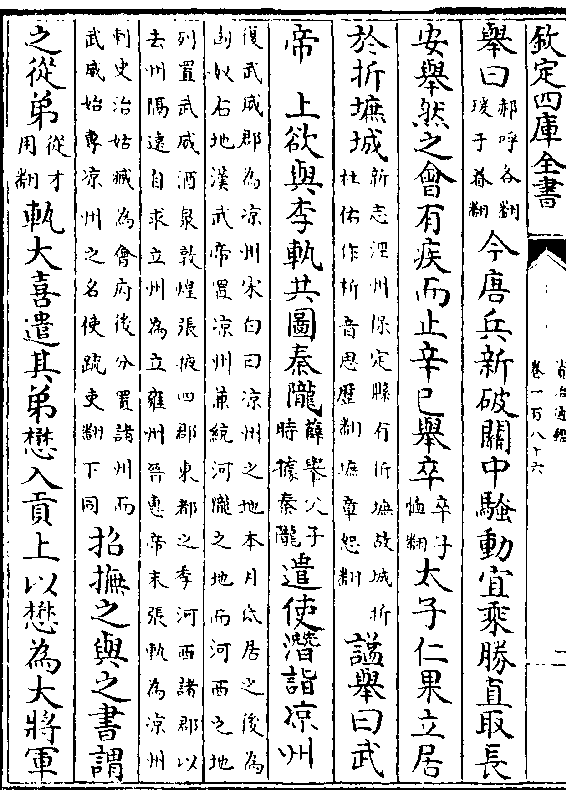 欽定四庫全書
資治通鑑
卷一百八十六
舉曰郝呼各翻瑗于眷翻今唐兵新破關中騷動宜乘勝直取長
安舉然之會有疾而止辛巳舉卒卒子恤翻太子仁果立居
於折墌城新志涇州保定縣有折墌故城折杜佑作析音思歷翻墌章恕翻諡舉曰武
帝　上欲與李軌共圖秦隴薛舉父子時據秦隴遣使潛詣凉州
復武威郡為凉州宋白曰凉州之地本月氏居之後為
匈奴右地漢武帝置凉州兼統河隴之地而河西之地
列置武威酒泉敦煌張掖四郡東都之季河西諸郡以
去州隔遠自求立州為立雍州晉惠帝末張軌為凉州
刺史治姑臧為會府後分置諸州而
武威始專凉州之名使疏吏翻下同招撫之與之書謂
之從弟從才用翻軌大喜遣其弟懋入貢上以懋為大將軍